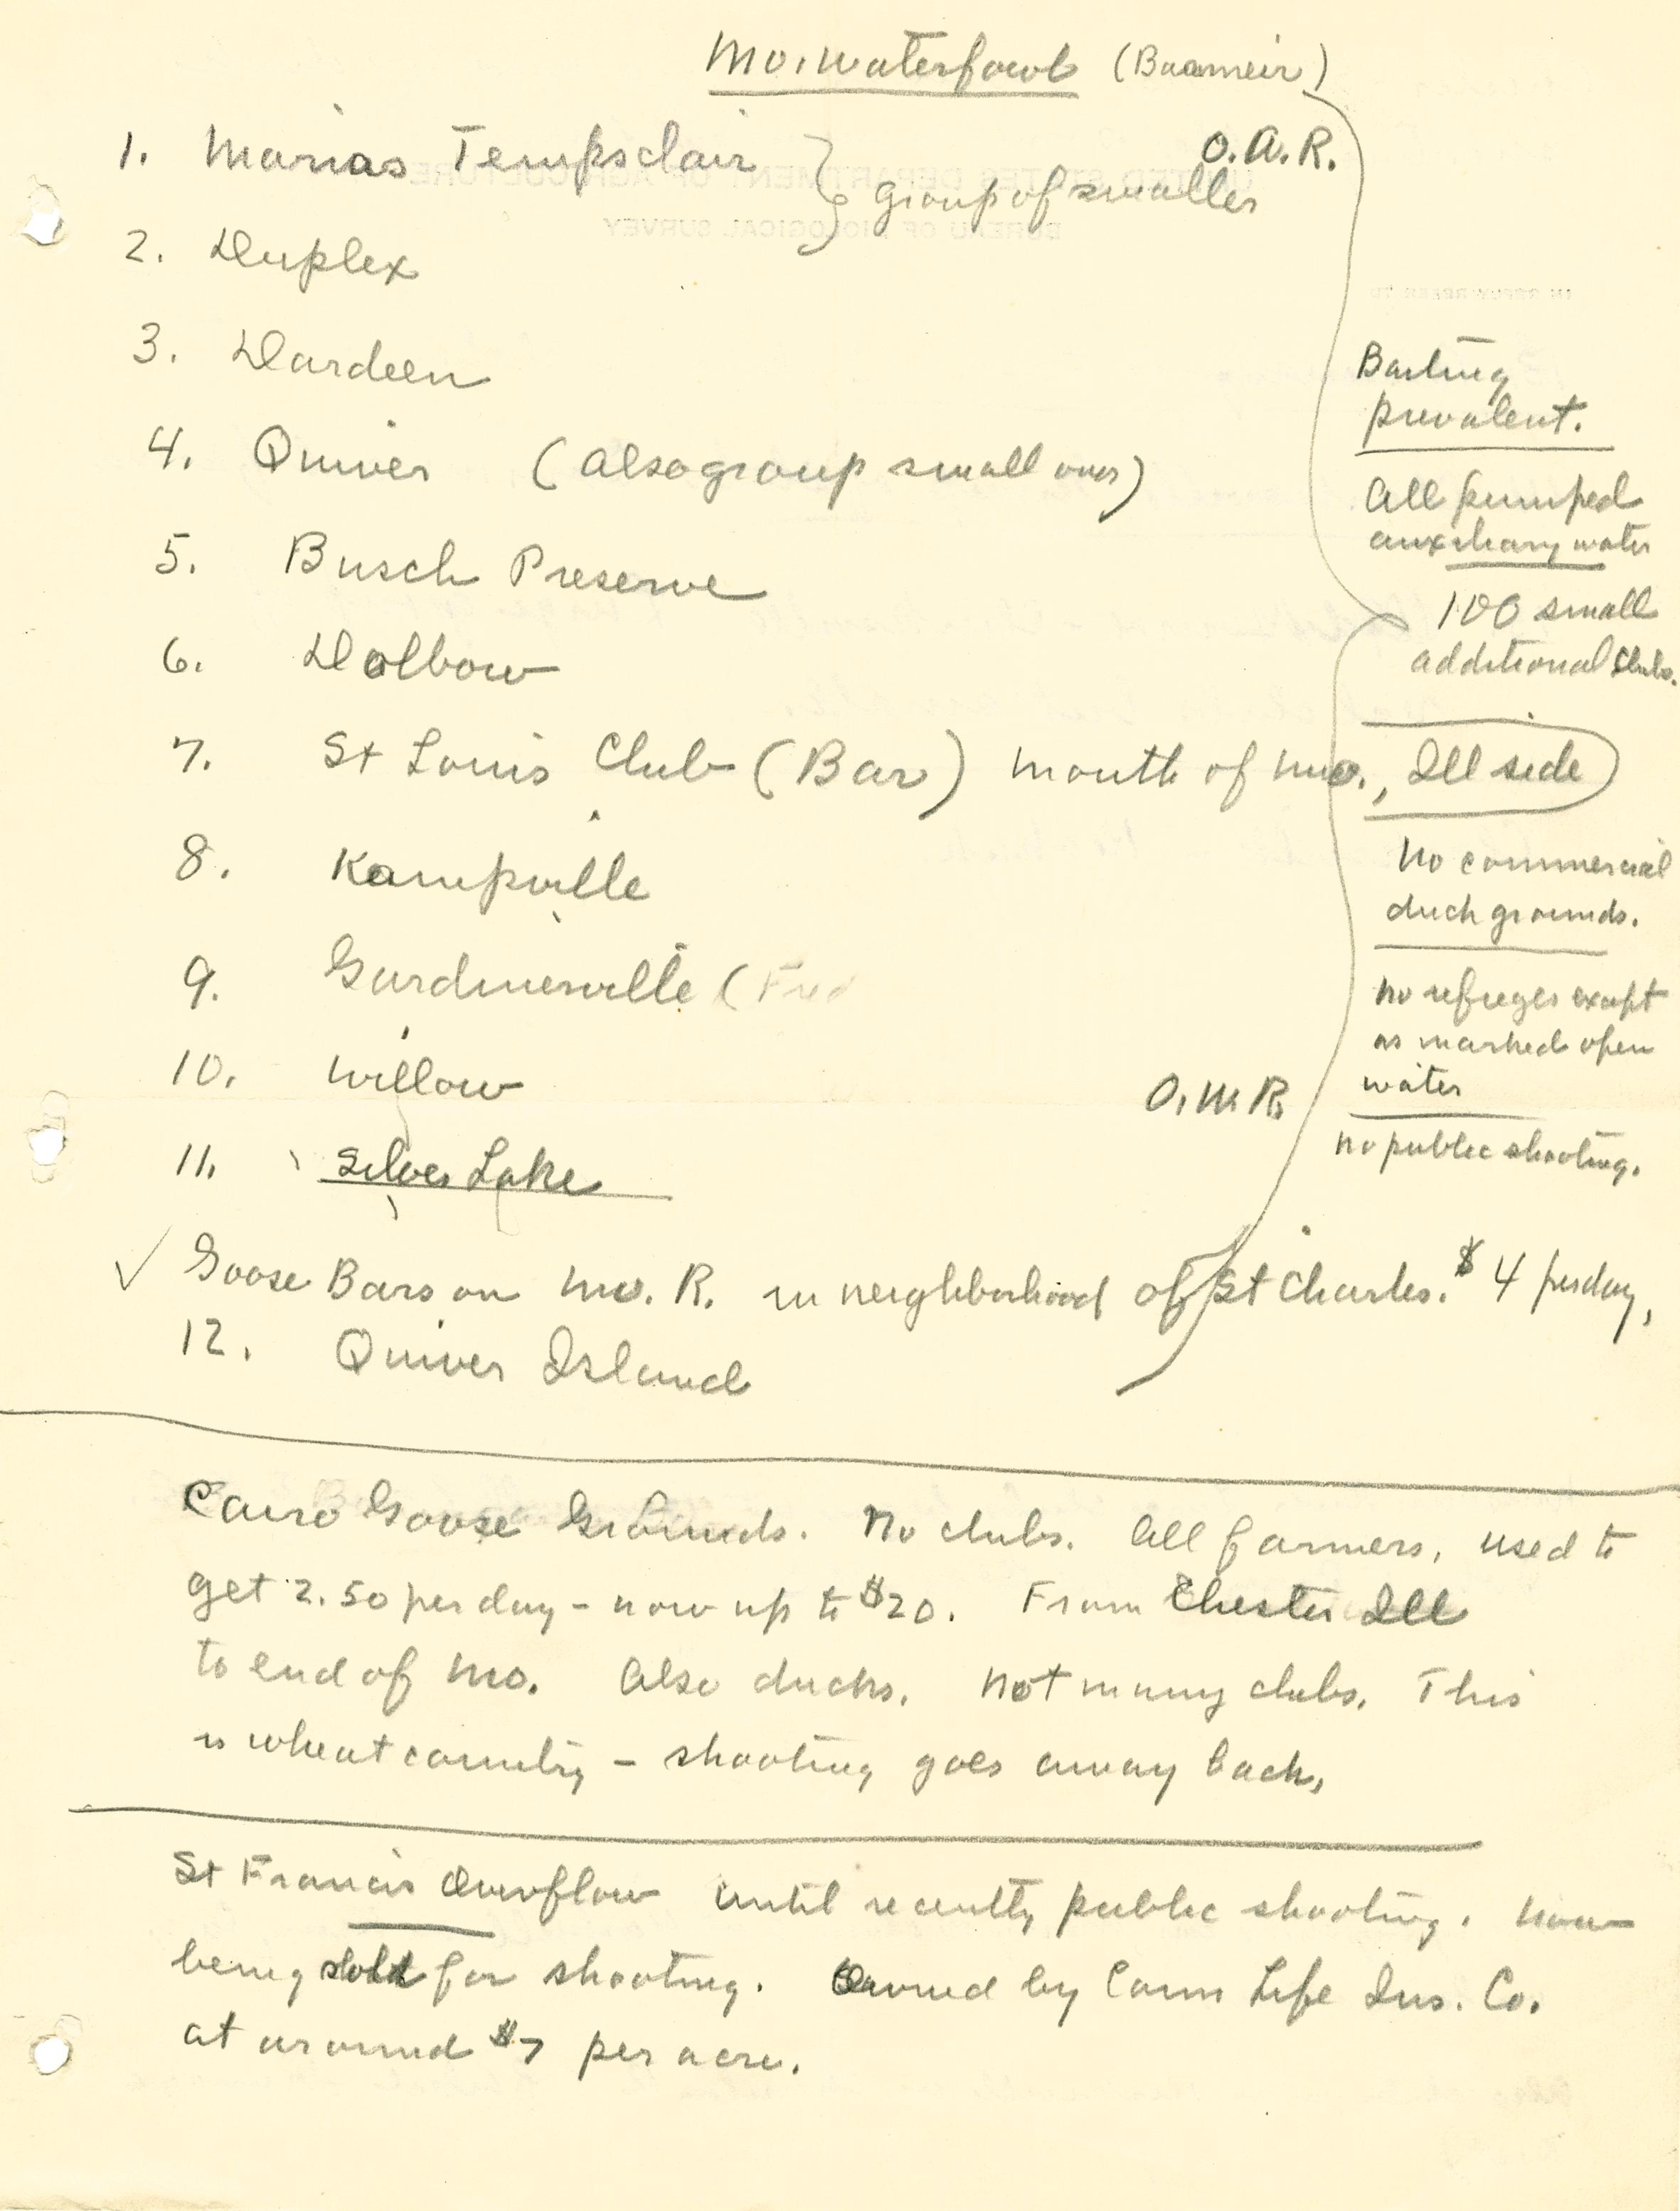 Mo. Waterfowl (Baameir)
O.A.R.
1. Marias Tempsclair } group of smaller
2. Duplex
3. Dardeen
4. Quiver (also group small ones)
5. Busch Preserve
6. Dolbow
7. St Louis Club (Bar) mouth of Mo., Ill side
8. Kampville
9. Gardnerville (Fred
10. Willow
11. Silver Lake
✓ Goose Bars on Mo. R. in neighborhood of St Charles. $4 per day,
12. Quiver Island
Baiting
prevalent.
All pumped
auxiliary water
100 small
additional clubs.
No commercial
duck grounds.
No refuges except
as marked open
water
O.M.R.
No public shooting.
Cairo Goose Grounds. No clubs. All farmers, used to
get 2.50 per day - now up to $20. From Chester Ill
to end of Mo. Also ducks. Not many clubs. This
is wheat country - shooting goes away back,
St Francis Overflow until recently public shooting. Now
being sold for shooting. Owned by Conn Life Ins. Co.
at around $7 per acre.
UNITED STATES DEPARTMENT OF AGRICULTURE
BUREAU OF BIOLOGICAL SURVEY
IN REPLY REFER TO